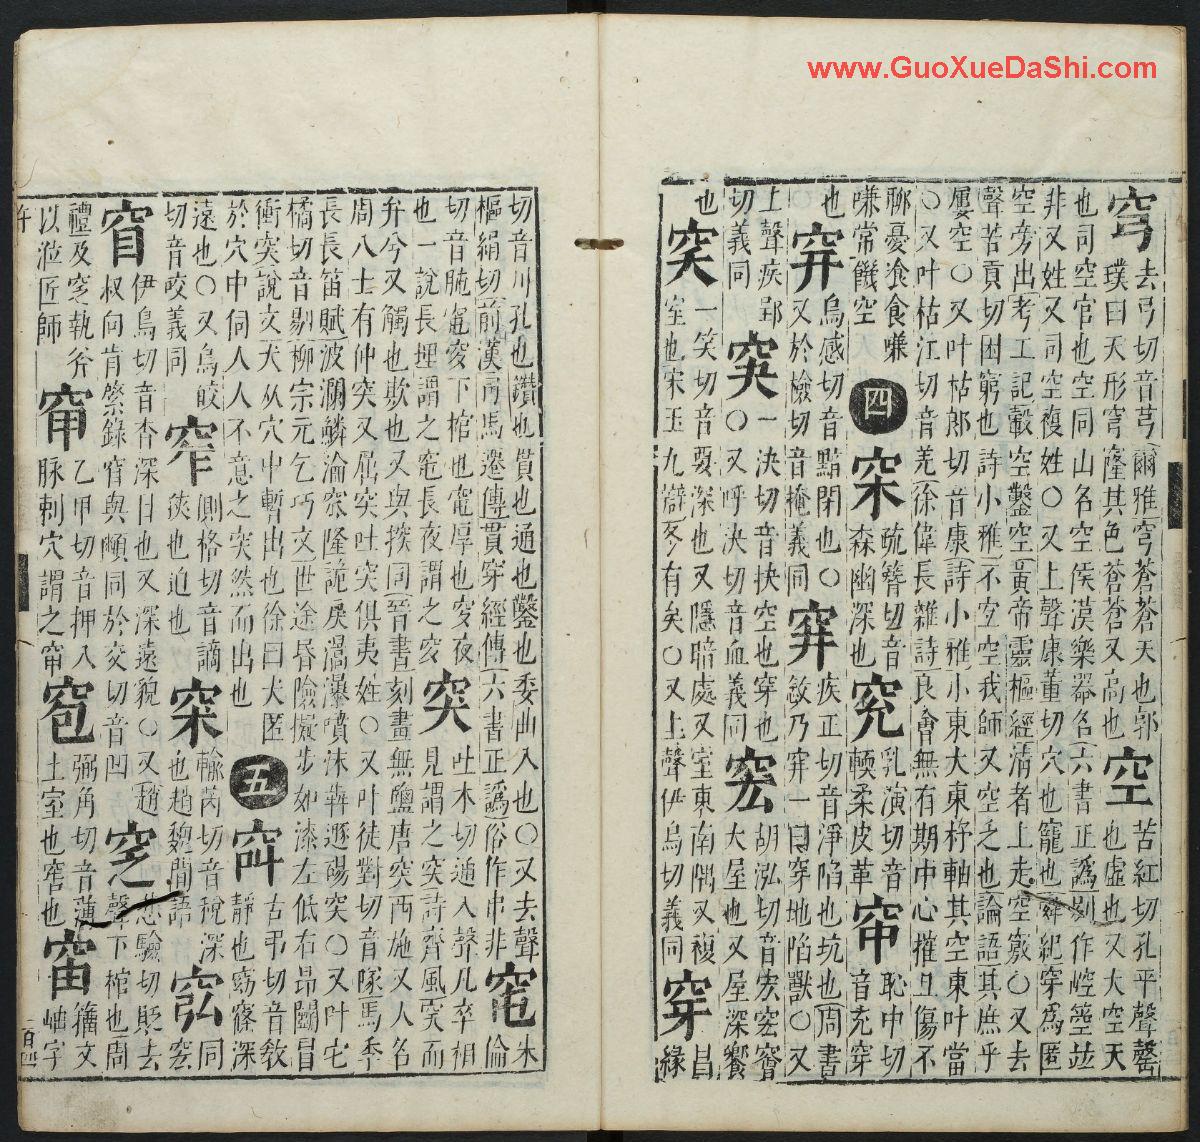 穹
去弓切音芎爾雅穹蒼蒼天也郭
璞曰天形穹隆其色蒼蒼又高也
空
苦紅切孔平聲罄
也虛也又大空天
也司空官也空同山名空侯漢樂器名六書正譌别作崆箜並
非又姓又司空複姓○又上聲康董切穴也竉也舜紀穿爲匿
空旁出考工記轂空鑿空黃帝靈樞經淸者上走空竅○又去
聲苦貢切困窮也詩小雅不空空我師又空乏也論語其庶乎
屢空○又叶枯郎切音康詩小雅小東大東杼軸其空東叶當
○又叶枯江切音羌徐偉長雜詩良會無有期中心摧且傷不
聊憂飡食嗛
嗛常饑空
四
穼
疏簪切音
森幽深也
㝃
乳演切音
輭柔皮革
恥中切
音充穿
也
○
烏感切音黯閉也○
又於檢切音掩義同
穽
疾正切音淨陷也坑也周書
敜乃穽一曰穿地陷獸○又
上聲疾郢
切義同
一決切音抉空也穿也
○又呼決切音血義同
胡泓切音宏宖窅
大屋也又屋深響
也
穾
一笑切音要深也又隱暗處又室東南隅又複
室也宋玉九辯冬有穾○又上聲伊鳥切義同
穿
昌
緣
切音川孔也鑽也貫也通也鑿也委曲入也○又去聲
樞絹切前漢司馬遷傳貫穿經傳六書正譌俗作串非
窀
朱
倫
切音肫窀穸下棺也窀厚也穸夜
也一說長埋謂之窀長夜謂之穸
突
吐木切遁入聲凡卒相
見謂之突詩齊風突而
弁兮又觸也欺也又與揬同晉書刻畫無鹽唐突西施又人名
周八士有仲突又屈突吐突俱夷姓○又叶徒對切音隊馬季
長長笛賦波瀾鱗淪窊隆詭戾瀑噴沫犇遯碭突○又叶
橘切音剔柳宗元乞巧文世途昏險擬步如漆左低右昂鬬冒
衝突說文犬从穴中暫出也徐曰犬匿
於穴中伺人人不意之突然而出也
五
古弔切音敎
靜也窈窱深
遠也○又烏皎
切音咬義同
窄
側格切音謫
狹也迫也
輸芮切音稅深
也趙魏間語
同
宏
窅
伊鳥切音杳深目也又深遠貌○又趙
叔向肯綮錄窅與顤同於交切音凹
窆
悲驗切貶去
聲下棺也周
禮及窆執斧
以涖匠師
乙甲切音押入
脉刺穴謂之
窇
弼角切音薄
土室也窖也
籀文
岫字
www.GuoXueDaShi.com